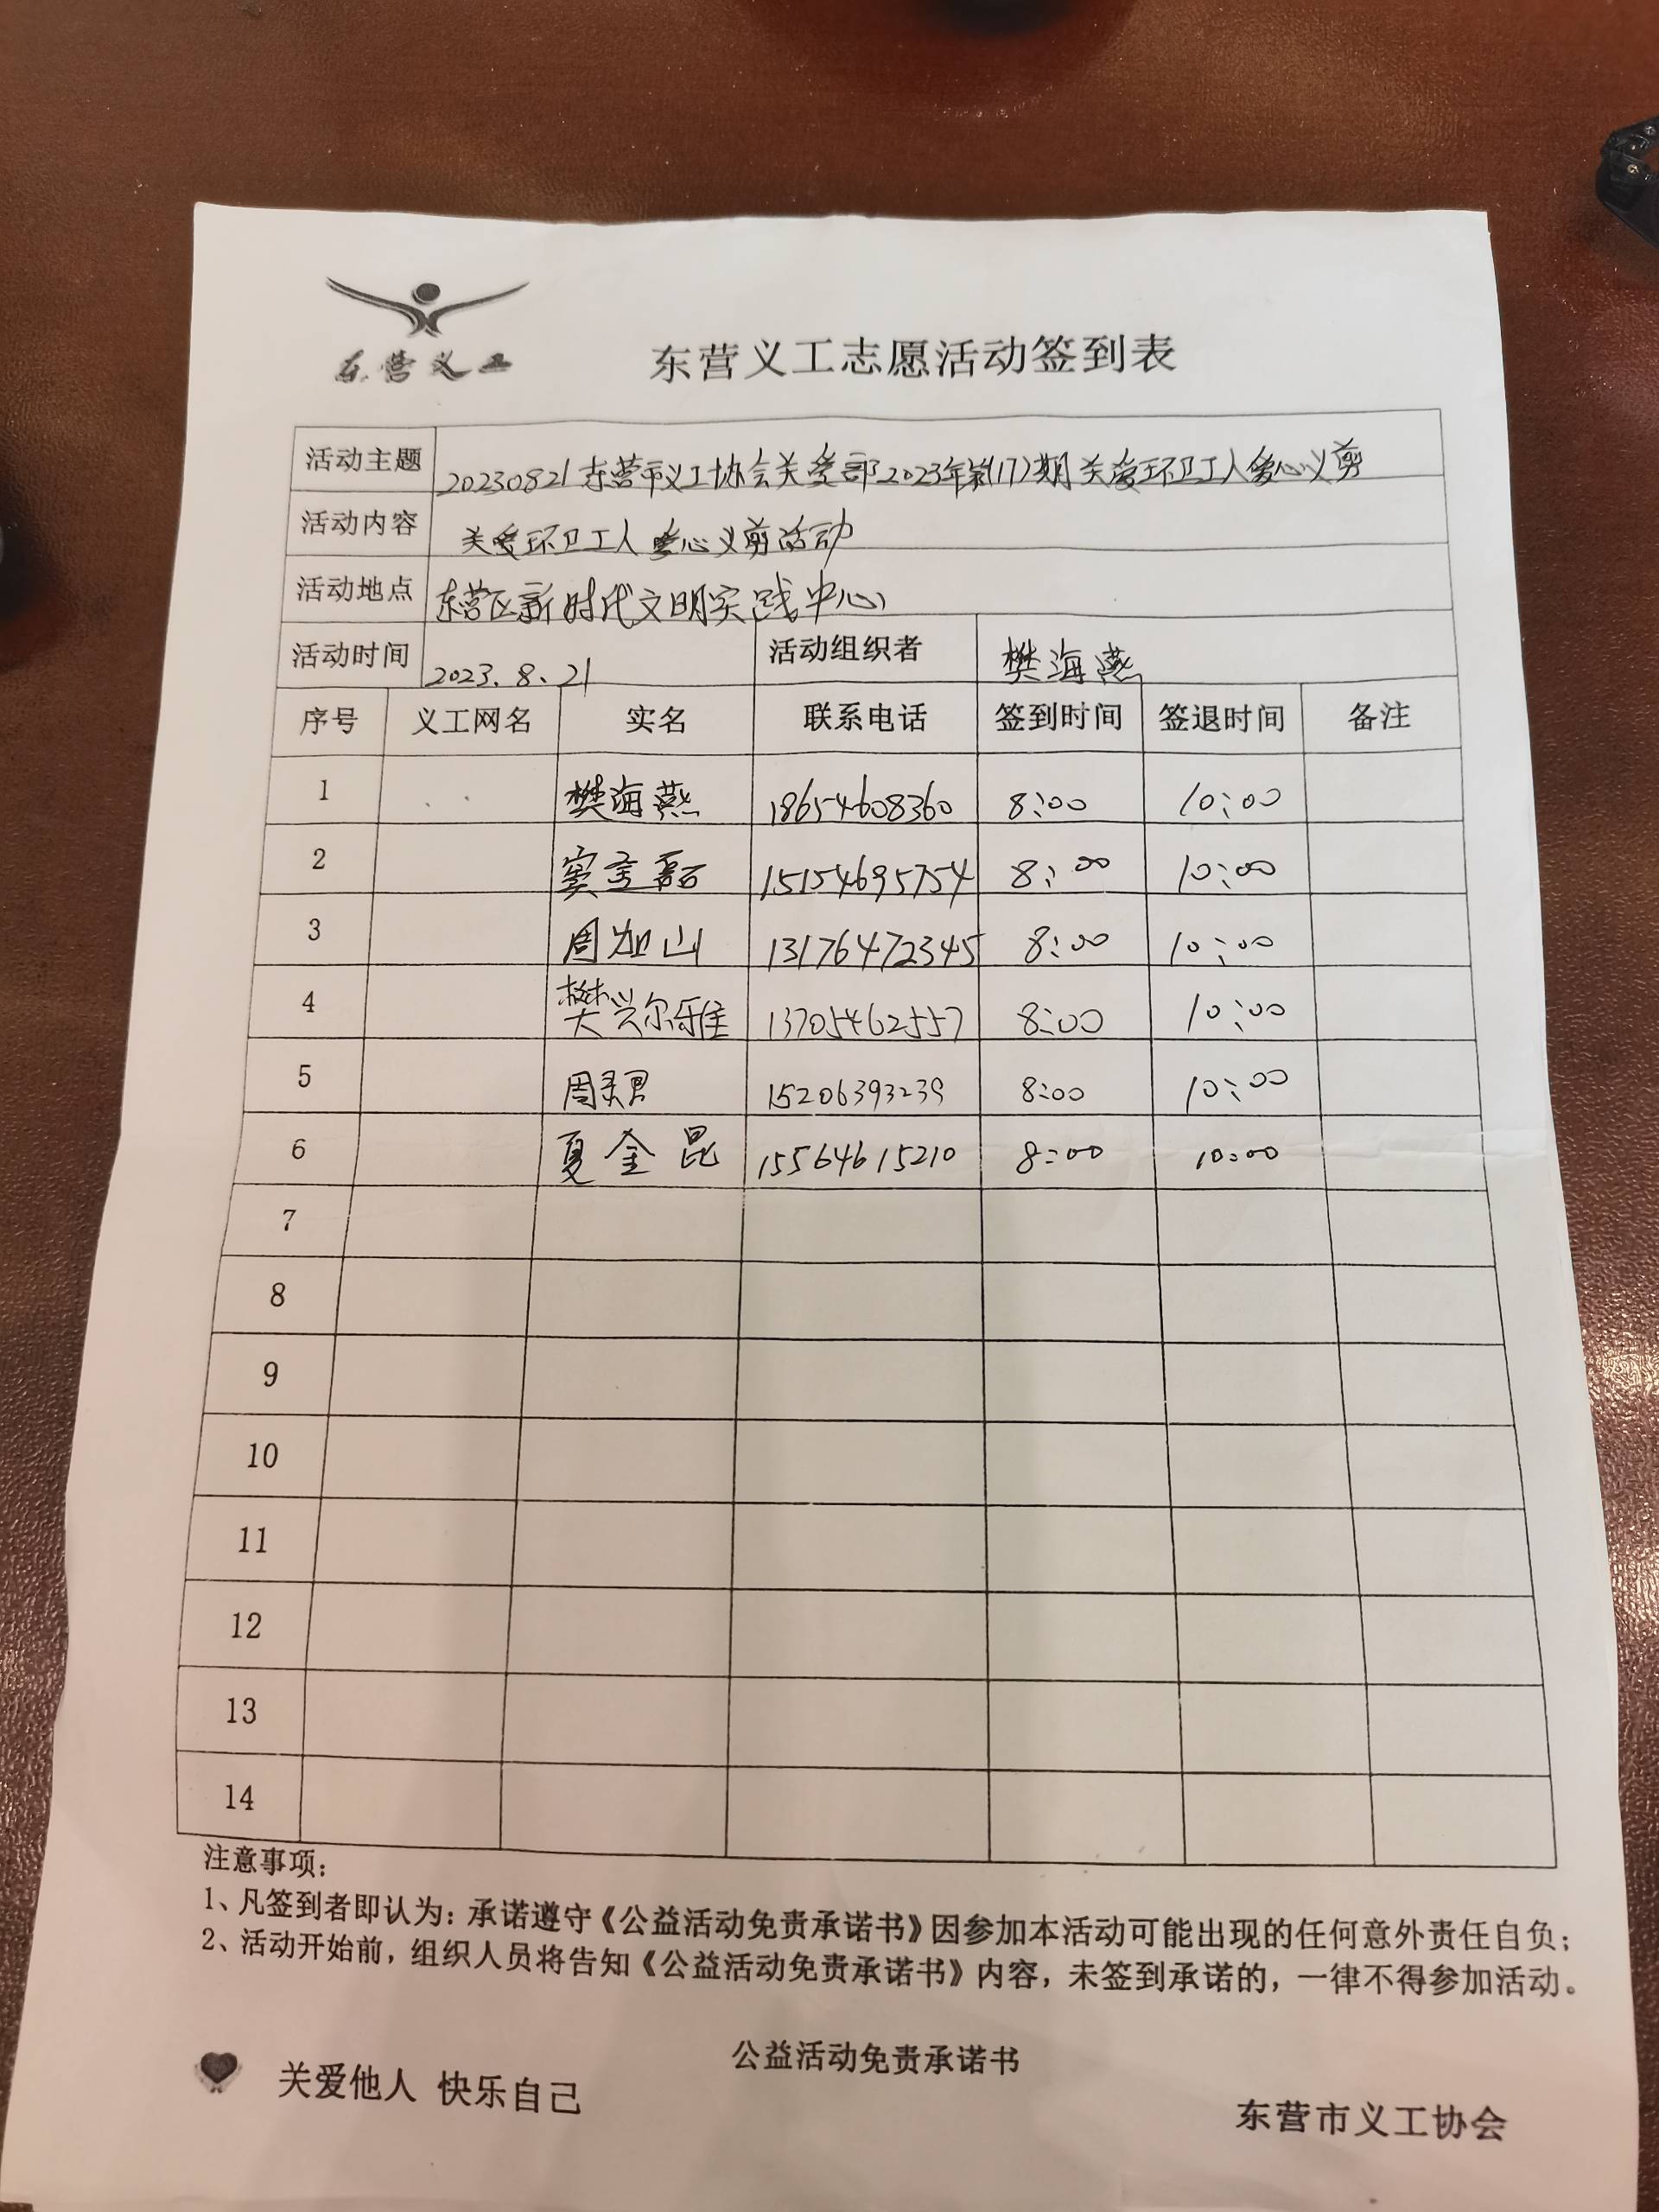 东营义工
东营义工志愿活动签到表
活动主题 20230821东营市义工协会关爱部2023年第(17)期关爱环卫工人爱心义剪
活动内容 关爱环卫工人爱心义剪活动
活动地点 东营区新时代文明实践中心
活动时间 2023.8.21 活动组织者 樊海燕
序号 义工网名 实名 联系电话 签到时间 签退时间 备注
1 樊海燕 18654608360 8:00 10:00
2 窦 磊 15154695754 8:00 10:00
3 周旭山 13176472345 8:00 10:00
4 樊兴尔雅 13705462557 8:00 10:00
5 周 君 15206393239 8:00 10:00
6 夏金昆 15564615210 8:00 10:00
7
8
9
10
11
12
13
14
注意事项：
1、凡签到者即认为：承诺遵守《公益活动免责承诺书》因参加本活动可能出现的任何意外责任自负；
2、活动开始前，组织人员将告知《公益活动免责承诺书》内容，未签到承诺的，一律不得参加活动。
公益活动免责承诺书
关爱他人 快乐自己
东营市义工协会